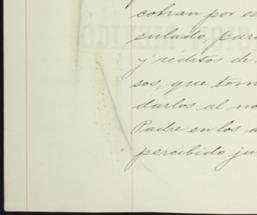 cobran por es
sulado, para
y reditos de
sos, que tom
darlos al no
Padre en los a
percibido ju